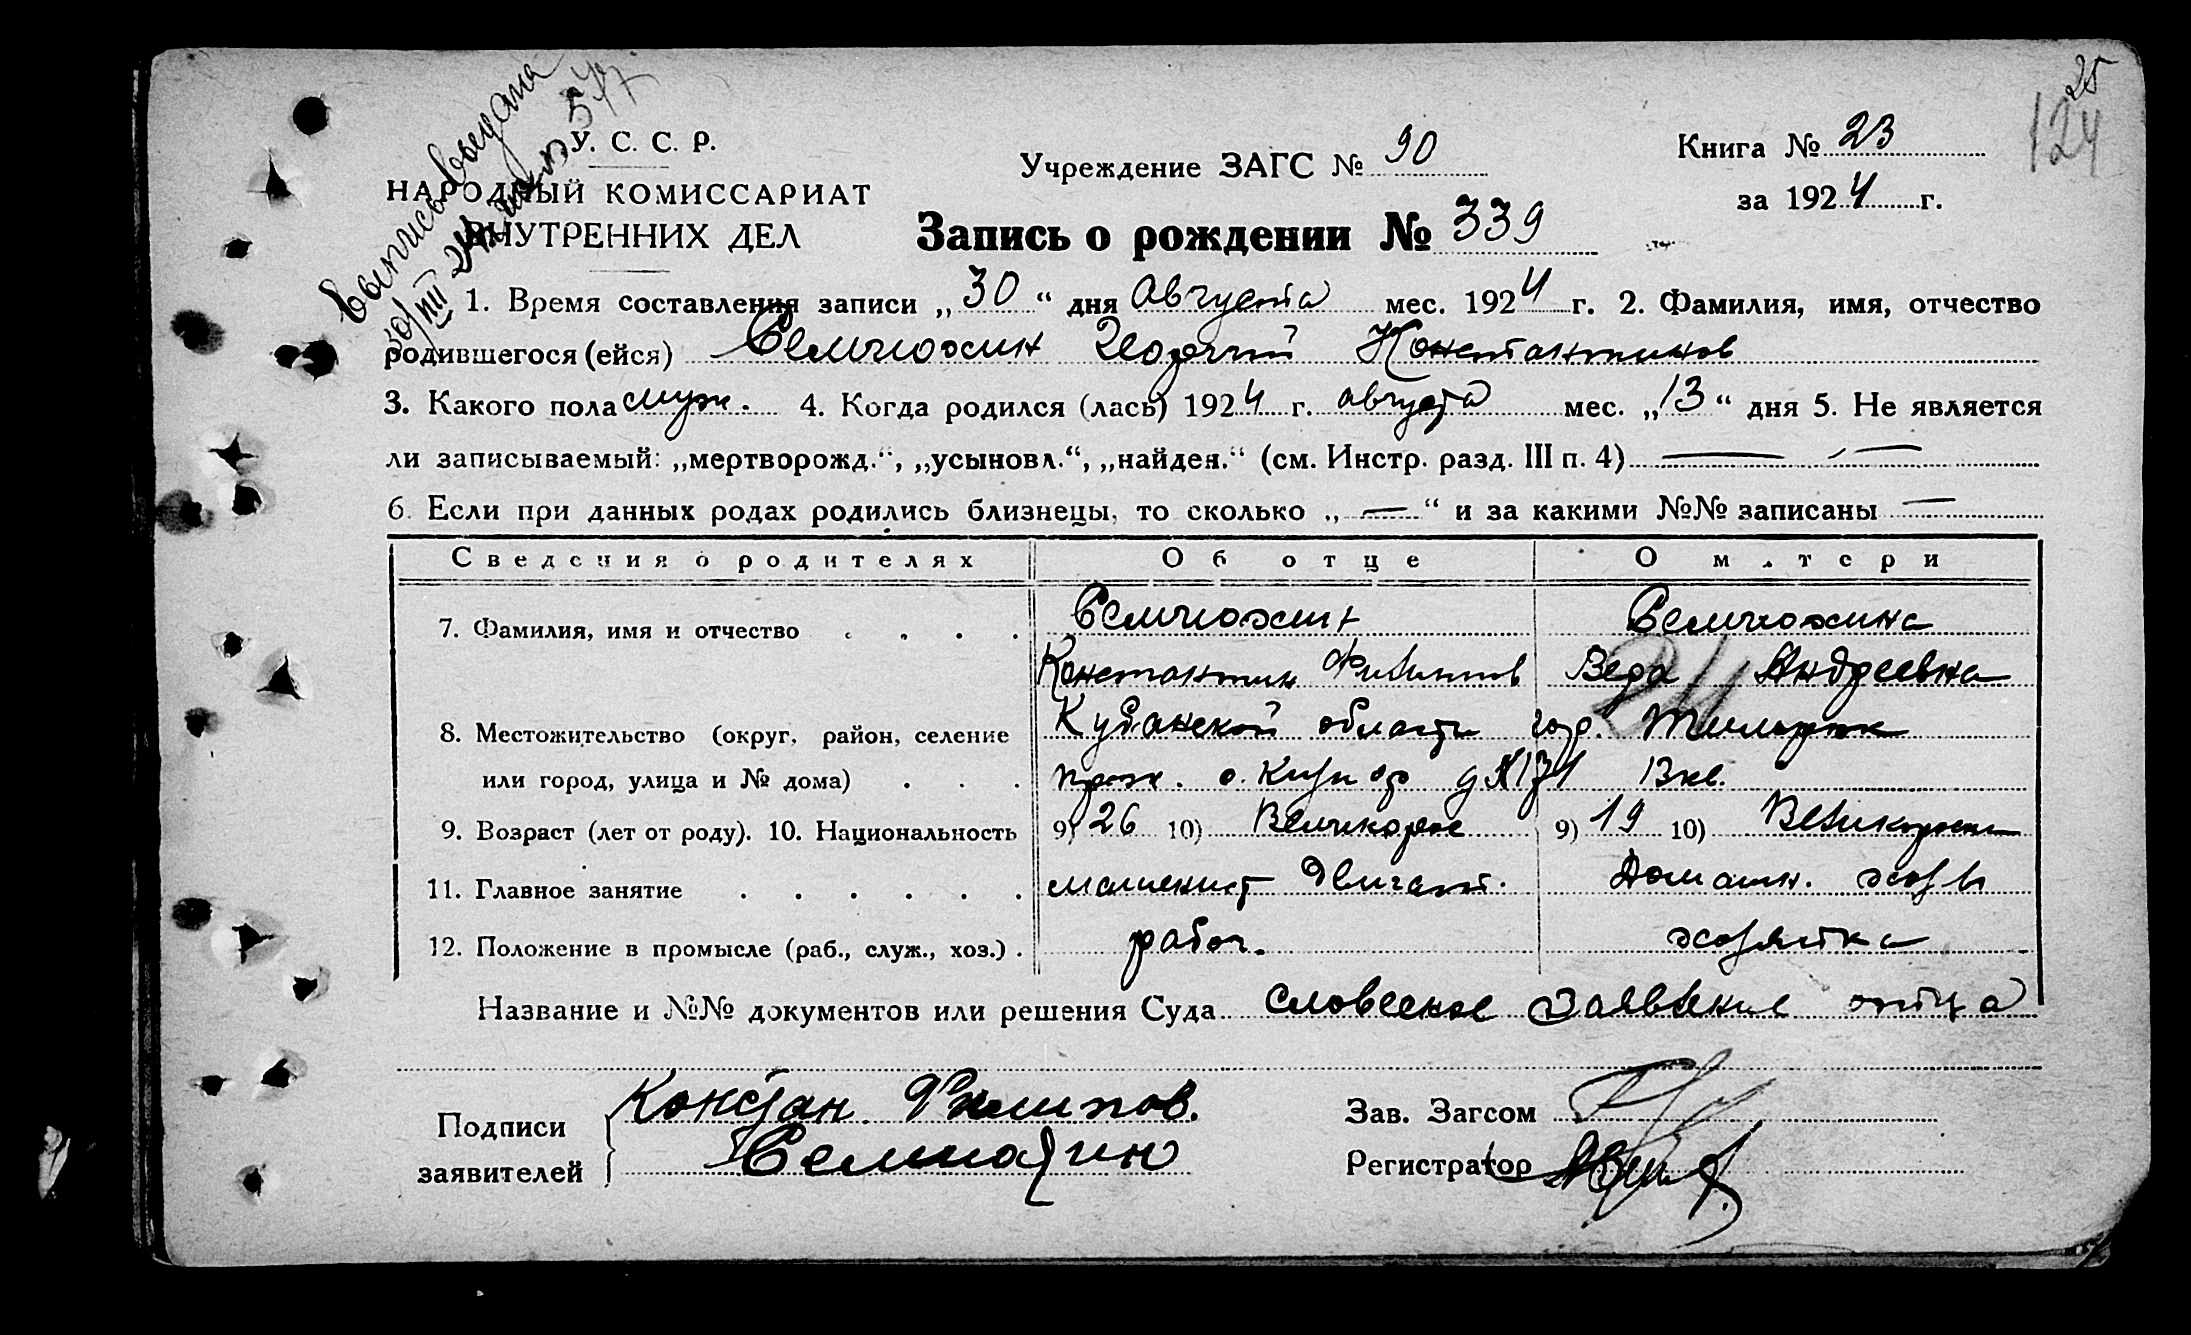 25
124
Выпись выдана
30/VIII 24 г.
547
У. С. С. Р.
НАРОДНЫЙ КОМИССАРИАТ
ВНУТРЕННИХ ДЕЛ
Учреждение ЗАГС № 90
Книга № 23
за 1924 г.
Запись о рождении № 339
1. Время составления записи „30“ дня Августа мес. 1924 г. 2. Фамилия, имя, отчество
родившегося (ейся) Семиохин Георгий Константинов
3. Какого пола муж. 4. Когда родился (лась) 1924 г. августа мес. „13“ дня 5. Не является
ли записываемый: „мертворожд.“, „усыновл.“, „найден.“ (см. Инстр. разд. III п. 4) — —
6. Если при данных родах родились близнецы, то сколько „—“ и за какими №№ записаны —
Сведения о родителях Об отце О матери
7. Фамилия, имя и отчество Семиохин Семиохина
Константин Филиппов Вера Андреевна
8. Местожительство (округ, район, селение Кубанской области гор.
или город, улица и № дома) прож. 13 кв.
9. Возраст (лет от роду). 10. Национальность 9) 26 10) Великорос 9) 19 10) Великорос
11. Главное занятие машинист двигат. Домашн. хоз-в
12. Положение в промысле (раб., служ., хоз.) рабоч. хозяйка
Название и №№ документов или решения Суда словесное заявление отца
Подписи
заявителей
Констан Филипов.
Зав. Загсом
Регистратор